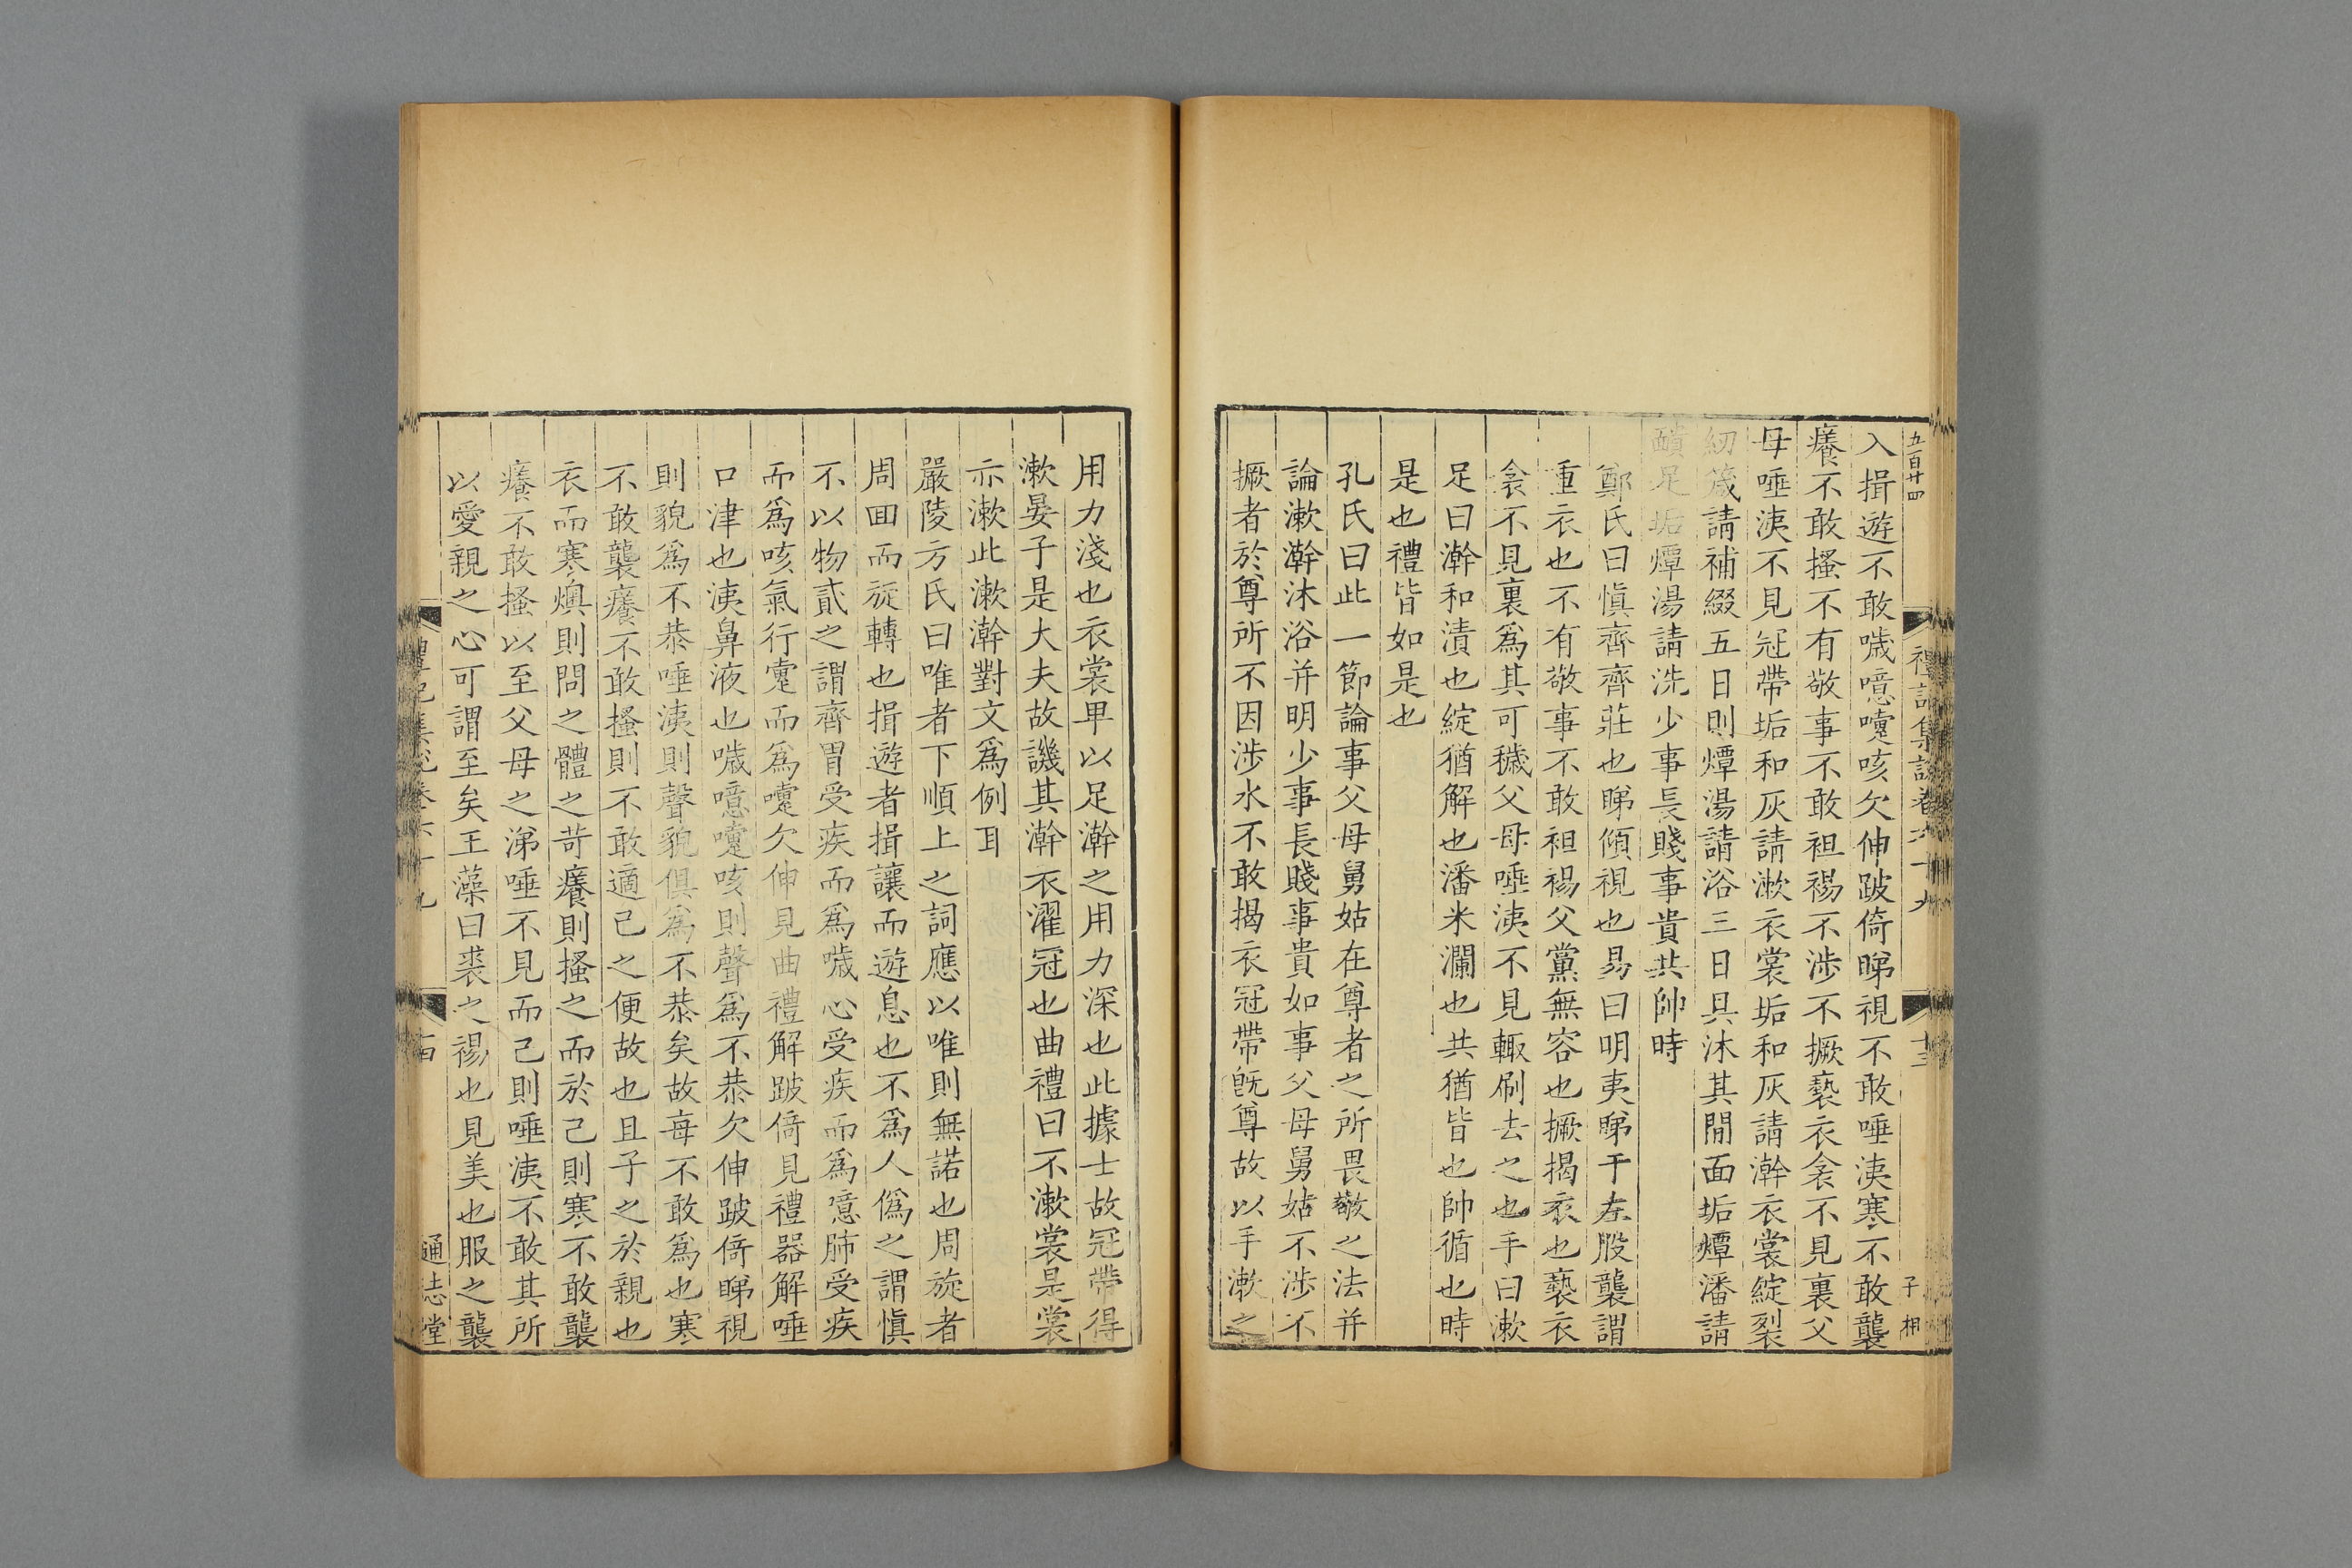 五百廿四
禮記集說卷六十九
十三
子相
入揖遊不敢噦噫嚔咳欠伸跛倚睇視不敢唾洟寒不敢襲
癢不敢搔不有敬事不敢袒裼不涉不撅褻衣衾不見裏父
母唾洟不見冠帶垢和灰請漱衣裳垢和灰請澣衣裳綻裂
紉箴請補綴五日則燂湯請浴三日具沐其閒面垢燂潘請
靧足垢燂湯請洗少事長賤事貴共帥時
鄭氏曰愼齊齊莊也睇傾視也易曰明夷睇于左股襲謂
重衣也不有敬事不敢袒裼父黨無容也撅揭衣也褻衣
衾不見裏爲其可穢父母唾洟不見輒刷去之也手曰漱
足曰澣和漬也綻猶解也潘米瀾也共猶皆也帥循也時
是也禮皆如是也
孔氏曰此一節論事父母舅姑在尊者之所畏敬之法幷
論漱澣沐浴幷明少事長賤事貴如事父母舅姑不涉不
撅者於尊所不因涉水不敢揭衣冠帶旣尊故以手漱之
用力淺也衣裳卑以足澣之用力深也此據士故冠帶得
漱晏子是大夫故譏其澣衣濯冠也曲禮曰不漱裳是裳
亦漱此漱澣對文爲例耳
嚴陵方氏曰唯者下順上之詞應以唯則無諾也周旋者
周回而旋轉也揖遊者揖讓而遊息也不爲人僞之謂愼
不以物貳之謂齊胃受疾而爲噦心受疾而爲噫肺受疾
而爲咳氣行㚄而爲嚔欠伸見曲禮解跛倚見禮器解唾
口津也洟鼻液也噦噫嚔咳則聲爲不恭欠伸跛倚睇視
則貌爲不恭唾洟則聲貌俱爲不恭矣故每不敢爲也寒
不敢襲癢不敢搔則不敢適己之便故也且子之於親也
衣而寒燠則問之體之苛癢則搔之而於己則寒不敢襲
癢不敢搔以至父母之涕唾不見而己則唾洟不敢其所
以愛親之心可謂至矣王藻曰裘之裼也見美也服之襲
禮記集說卷六十九
十四
通志堂